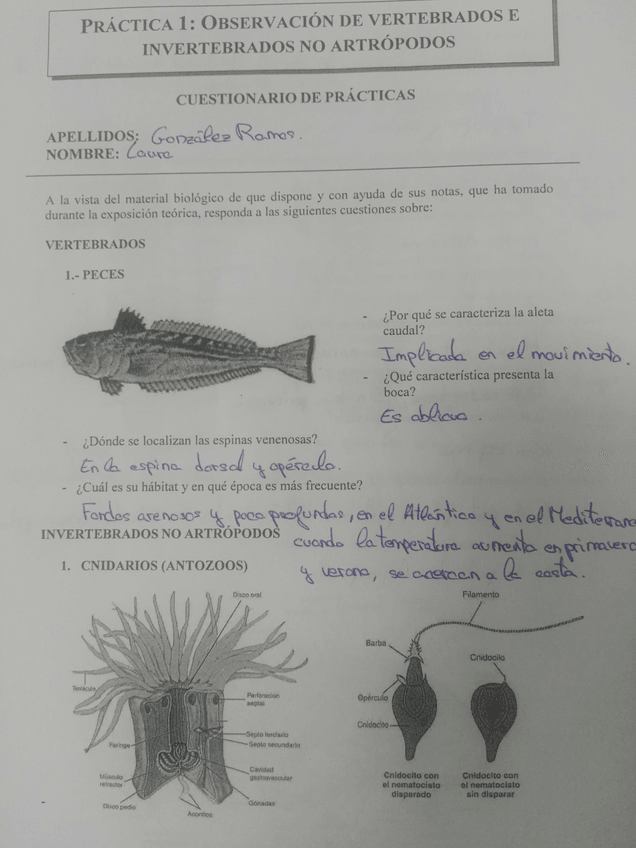 PRÁCTICA 1: OBSERVACIÓN DE VERTEBRADOS E
INVERTEBRADOS NO ARTRÓPODOS
CUESTIONARIO DE PRÁCTICAS
APELLIDOS: González Ramos.
NOMBRE: Laura
A la vista del material biológico de que dispone y con ayuda de sus notas, que ha tomado
durante la exposición teórica, responda a las siguientes cuestiones sobre:
VERTEBRADOS
1.- PECES
- ¿Por qué se caracteriza la aleta
caudal?
Implicada en el movimiento.
- ¿Qué característica presenta la
boca?
Es oblicua.
- ¿Dónde se localizan las espinas venenosas?
En la espina dorsal y opérculo.
- ¿Cuál es su hábitat y en qué época es más frecuente?
Fondos arenosos y poco profundos, en el Atlántico y en el Mediterraneo
cuando la temperatura aumenta en primavera
y verano, se acercan a la costa.
INVERTEBRADOS NO ARTRÓPODOS
1. CNIDARIOS (ANTOZOOS)
Disco oral
Tentáculo
Perforación
septal
Faringe
Septo terciario
Septo secundario
Cavidad
gastrovascular
Músculo
retractor
Gónadas
Disco pedio
Acontios
Filamento
Barba
Cnidocilo
Opérculo
Cnidocito
Cnidocito con
el nematocisto
disparado
Cnidocito con
el nematocisto
sin disparar